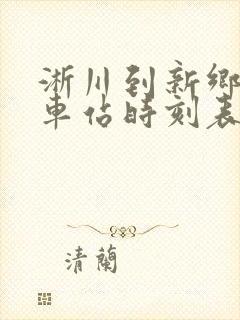 淅川到新鄉
車佔時刻表
清蘭